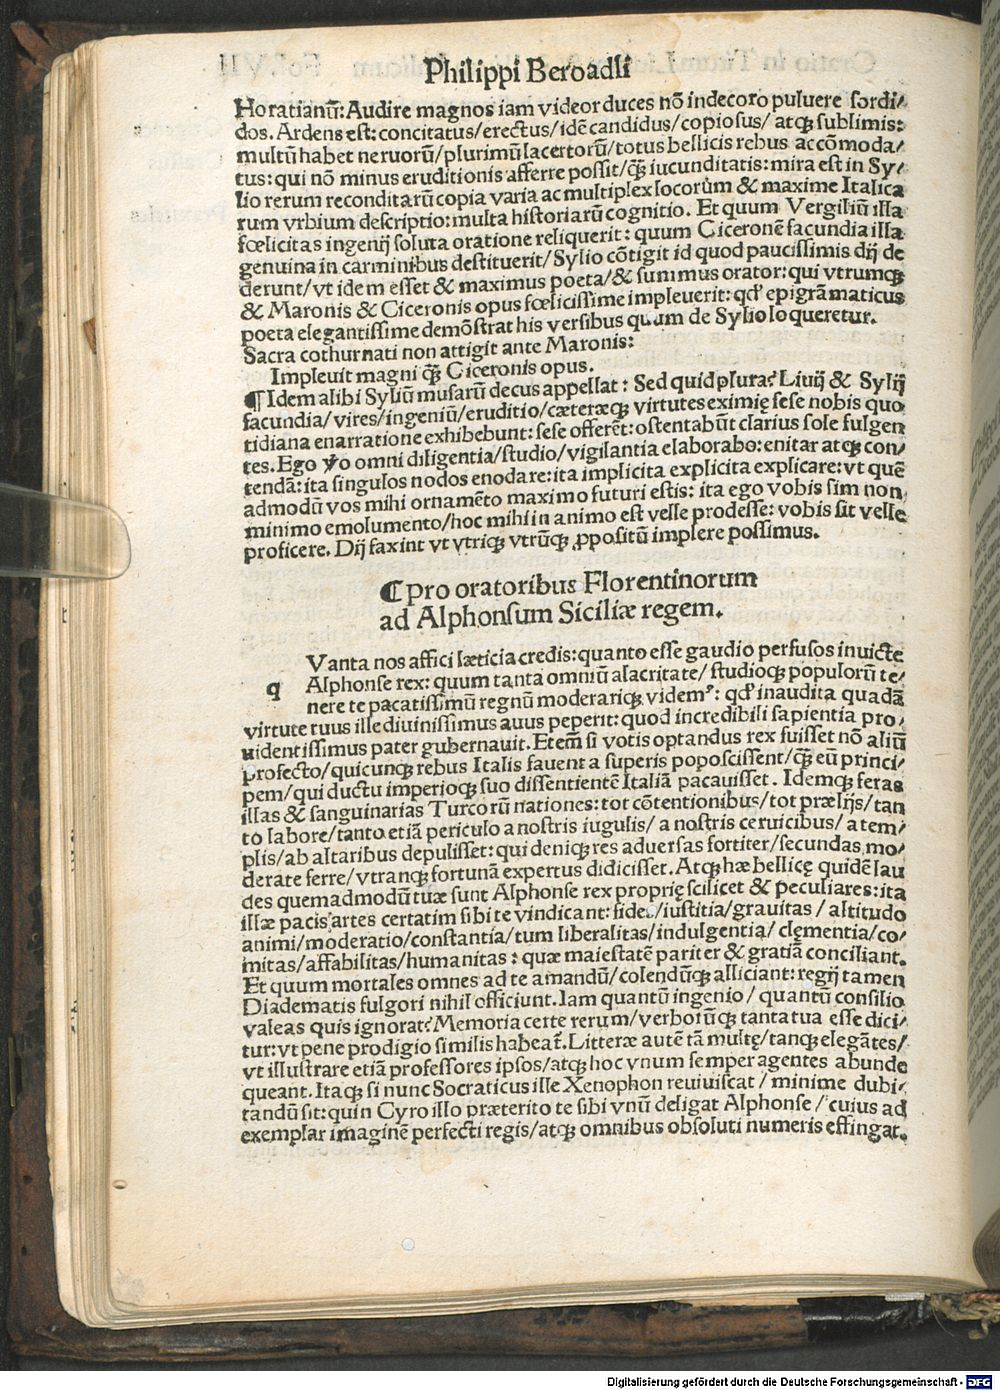 Philippi Beroadli
Horatianū: Audire magnos iam videor duces nō indecoro puluere sordi/
dos. Ardens est: concitatus/erectus/idē candidus/copiosus/ atqꝫ sublimis:
multū habet neruorū/plurimū lacertorū/totus bellicis rebus accōmoda/
tus: qui nō minus eruditionis afferre possit/qꝫ̄ iucunditatis: mira est in Sy/
lio rerum reconditarū copia varia ac multiplex locorūm & maxime Italica
rum vrbium descriptio: multa historiarū cognitio. Et quum Vergiliū illa
fœlicitas ingenij soluta oratione reliquerit: quum Ciceronē facundia illa
genuina in carminibus destituerit/Sylio cōtigit id quod paucissimis dij de
derunt/vt idem esset & maximus poeta/& summus orator: qui vtrumqꝫ
& Maronis & Ciceronis opus fœlicissime impleuerit: qd' epigrāmaticus
poeta elegantissime demōstrat his versibus quum de Sylio loqueretur.
Sacra cothurnati non attigit ante Maronis:
Impleuit magni qꝫ̄ Ciceronis opus.
¶ Idem alibi Syliū musarū decus appellat: Sed quid plura? Liuij & Sylij
facundia/vires/ingeniū/eruditio/cæteræqꝫ virtutes eximię sese nobis quo
tidiana enarratione exhibebunt: sese offerēt: ostentabūt clarius sole fulgen
tes. Ego ꝟo omni diligentia/studio/vigilantia elaborabo: enitar atqꝫ con/
tendā: ita singulos nodos enodare: ita implicita explicita explicare: vt quē
admodū vos mihi ornamēto maximo futuri estis: ita ego vobis sim non
minimo emolumento/hoc mihi in animo est velle prodesse: vobis sit velle
proficere. Dij faxint vt vtriqꝫ vtrūqꝫ ꝓpositū implere possimus.
¶ pro oratoribus Florentinorum
ad Alphonsum Siciliæ regem.
q Vanta nos affici læticia credis: quanto esse gaudio perfusos inuicte
Alphonse rex: quum tanta omniū alacritate/ studioqꝫ populorū te/
nere te pacatissimū regnū moderariqꝫ videmꝰ: qd' inaudita quadā
virtute tuus ille diuinissimus auus peperit: quod incredibili sapientia pro/
uidentissimus pater gubernauit. Etem̄ si votis optandus rex fuisset nō aliū
profecto/quicunqꝫ rebus Italis fauent a superis poposcissent/qꝫ̄ eū princi/
pem/qui ductu imperioqꝫ suo dissentientē Italiā pacauisset. Idemqꝫ feras
illas & sanguinarias Turcorū nationes: tot cōtentionibus/tot prælijs/tan
to labore/tanto etiā periculo a nostris iugulis/ a nostris ceruicibus/ a tem/
plis/ab altaribus depulisset: qui deniqꝫ res aduersas fortiter/secundas mo/
derate ferre/vtranqꝫ fortunā expertus didicisset. Atqꝫ hæ bellicę quidē lau
des quemadmodū tuæ sunt Alphonse rex proprię scilicet & peculiares: ita
illæ pacis artes certatim sibi te vindicant: fides/iustitia/grauitas / altitudo
animi/moderatio/constantia/tum liberalitas/indulgentia/ clęmentia/co/
mitas/affabilitas/humanitas: quæ maiestatē pariter & gratiā conciliant.
Et quum mortales omnes ad te amandū/colendūqꝫ alliciant: regij tamen
Diadematis fulgori nihil officiunt. Iam quantū ingenio / quantū consilio
valeas quis ignorat? Memoria certe rerum/verborūqꝫ tanta tua esse dici/
tur: vt pene prodigio similis habeat̄. Litteræ autē tā multę/tanqꝫ elegātes/
vt illustrare etiā professores ipsos/atqꝫ hoc vnum semper agentes abunde
queant. Itaqꝫ si nunc Socraticus ille Xenophon reuiuiscat / minime dubi/
tandū sit: quin Cyro illo præterito te sibi vnū deligat Alphonse / cuius ad
exemplar imaginē perfecti regis/atqꝫ omnibus obsoluti numeris effingat.
Digitalisierung gefördert durch die Deutsche Forschungsgemeinschaft - DFG